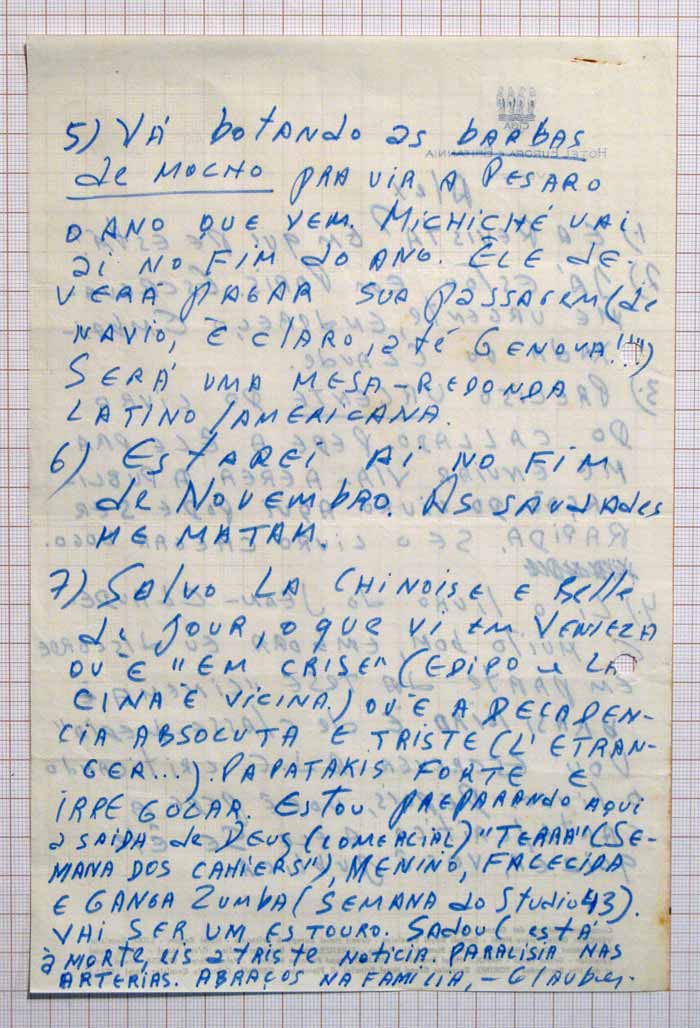 5) VÁ botando as barbas
de molho pra vir a Pesaro
o ano que vem. Michiché vai
aí no fim do ano. Ele de-
verá pagar sua passagem (de
navio, é claro, até Genova!!!)
Será uma mesa-redonda
latino/americana.
6) Estarei aí no fim
de Novembro. As saudades
me matam.
7) Salvo La Chinoise e Belle
de Jour, o que vi em Veneza
ou é "em crise" (Edipo e La
Cina è Vicina.) ou é a decaden-
cia absoluta e triste (L'Etran-
ger...). Papatakis forte e
irregular. Estou preparando aqui
a saida de Deus (comercial) "Terra" (Se-
mana dos Cahiers"), Menino, Falecida
e Ganga Zumba (Semana do Studio 43).
Vai ser um estouro. Sadoul está
à morte, eis a triste noticia. Paralisia nas
arterias. Abraços na familia, - Glauber.